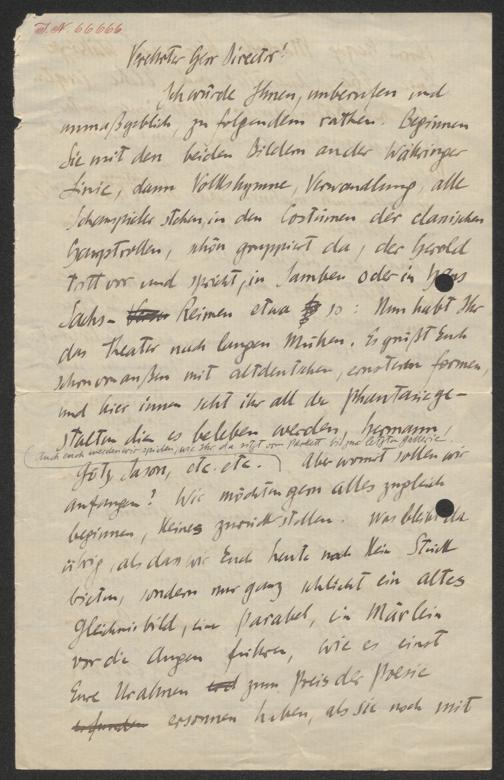 I. N. 66666
Verehrter Herr Director!
Ich würde Ihnen, unberufen und
unmaßgeblich, zu folgendem rathen. Beginnen
Sie mit den beiden Bildern an der Währinger
Linie, dann Volkshymne, Verwandlung, alle
Schauspieler stehen, in den Costümen der classischen
Hauptrollen, schön gruppiert da, der Herold
tritt vor und spricht, in Jamben oder in Hans
Sachs- Reimen etwa so: Nun habt Ihr
das Theater nach langen Mühen. Es grüßt Euch
schon von außen mit altdeutschen, ernsten Formen,
und hier innen seht ihr all die Phantasiege-
stalten die es beleben werden, Hermann,
Auch euch werden wir spielen, wie Ihr da sitzt vom Parkett bis zur letzten Gallerie.
Götz, Jason, etc. etc. Aber womit sollen wir
anfangen? Wir möchten gern alles zugleich
beginnen, Keines zurückstellen. Was bleibt da
übrig, als dass wir Euch heute noch kein Stück
bieten, sondern nur ganz schlicht ein altes
Gleichnisbild, eine Parabel, ein Märlein
vor die Augen führen, wie es einst
Eure Urahnen zum Preis der Poesie
ersonnen haben, als sie noch mit